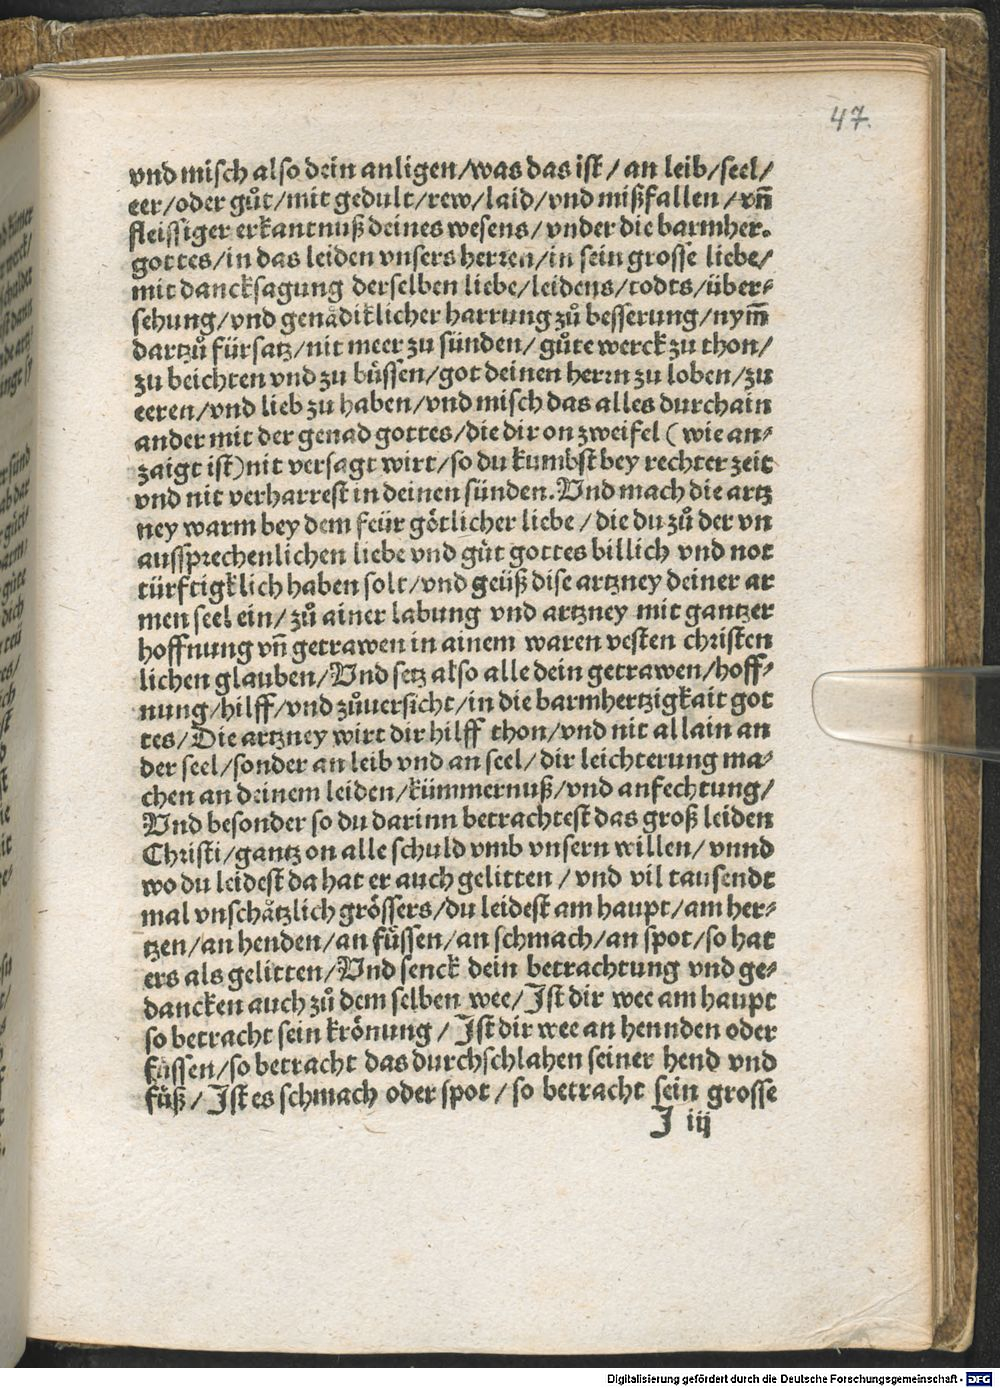 47.
vnd misch also dein anligen/was das ist/ an leib/seel/
eer/oder gůt/mit gedult/rew/laid/vnd mißfallen/vñ
fleissiger erkantnuß deines wesens/vnder die barmher.
gottes/in das leiden vnsers herren/in sein grosse liebe/
mit dancksagung derselben liebe/leidens/todts/über⸗
sehung/vnd genådiklicher harrung zů besserung/nym̃
dartzů fürsatz/nit meer zu sünden/gůte werck zu thon/
zu beichten vnd zu bůssen/got deinen herrn zu loben/zu
eeren/vnd lieb zu haben/vnd misch das alles durchain
ander mit der genad gottes/die dir on zweifel (wie an⸗
zaigt ist) nit versagt wirt/so du kumbst bey rechter zeit
vnd nit verharrest in deinen sünden. Vnd mach die artz
ney warm bey dem feür götlicher liebe/die du zů der vn
aussprechenlichen liebe vnd gůt gottes billich vnd not
türftigklich haben solt/vnd geüß dise artzney deiner ar
men seel ein/zů ainer labung vnd artzney mit gantzer
hoffnung vñ getrawen in ainem waren vesten christen
lichen glauben/Vnd setz also alle dein getrawen/hoff⸗
nung/hilff/vnd zůuersicht/in die barmhertzigkait got
tes/Die artzney wirt dir hilff thon/vnd nit allain an
der seel/sonder an leib vnd an seel/dir leichterung ma⸗
chen an deinem leiden/kümmernuß/vnd anfechtung/
Vnd besonder so du darinn betrachtest das groß leiden
Christi/gantz on alle schuld vmb vnsern willen/vnnd
wo du leidest da hat er auch gelitten/vnd vil tausendt
mal vnschåtzlich grössers/du leidest am haupt/am her⸗
tzen/an henden/an fůssen/an schmach/an spot/so hat
ers als gelitten/Vnd senck dein betrachtung vnd ge⸗
dancken auch zů dem selben wee/Ist dir wee am haupt
so betracht sein krönung/Ist dir wee an hennden oder
fůssen/so betracht das durchschlahen seiner hend vnd
fůß/Ist es schmach oder spot/so betracht sein grosse
I iij
Digitalisierung gefördert durch die Deutsche Forschungsgemeinschaft - DFG